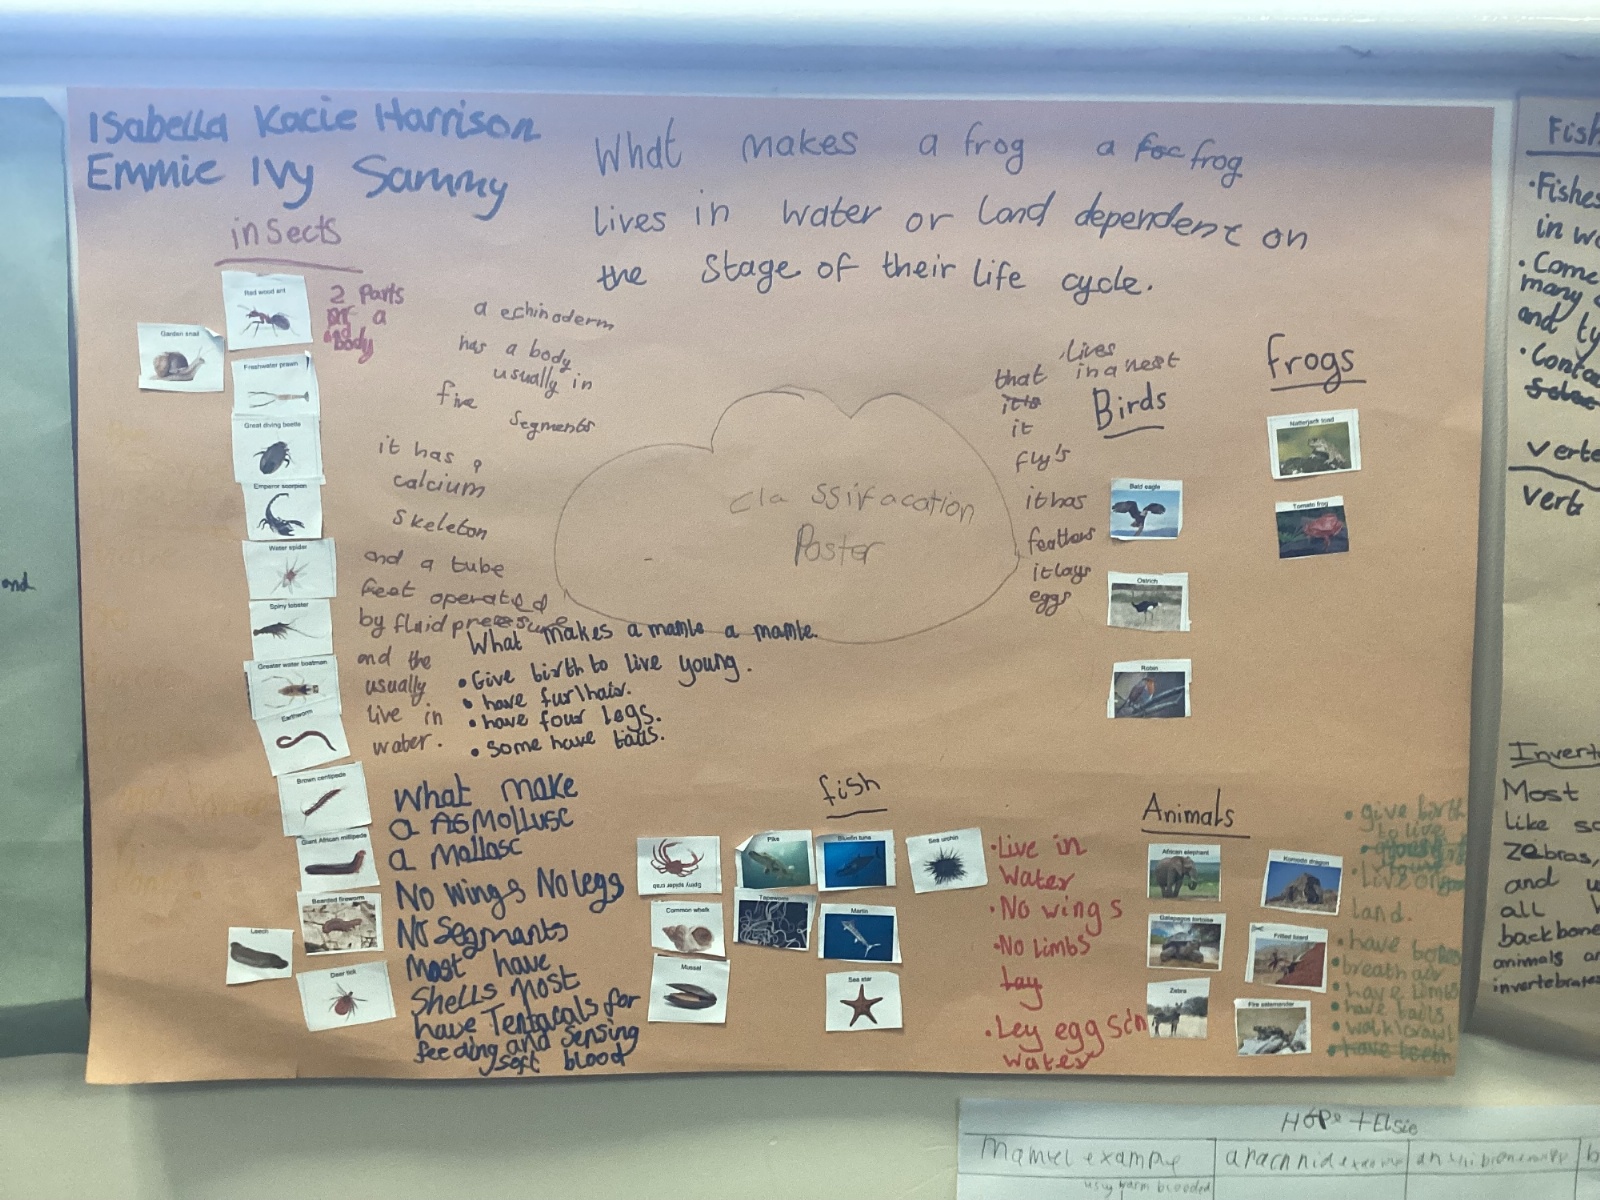 Isabella Kacie Harrison
Emmie Ivy Sammy
What makes a frog a frog
lives in water or land dependent on
the stage of their life cycle.
insects
2 Parts
of a
body
Red wood ant
Garden snail
Freshwater prawn
Great diving beetle
Emperor scorpion
Water spider
Spiny lobster
Greater water boatman
Earthworm
Brown centipede
Giant African millipede
Bearded fireworm
Leech
Deer tick
a echinoderm
has a body
usually in
five
segments
it has a
calcium
skeleton
and a tube
feet operated
by fluid pressure
and the
usually
live in
water.
classifacation
Poster
What makes a mamle a mamle.
• Give birth to live young.
• have fur/hair.
• have four legs.
• some have tails.
What make
a AsMollusc
a Mollosc
No Wings No legs
No Segmants
Most have
Shells most
have Tentacals for
feeding and sensing
soft blood
lives
in a nest
that
it's
it
fly's
it has
feathers
it lays
eggs
Birds
Bald eagle
Ostrich
Robin
frogs
Natterjack toad
Tomato frog
fish
Spiny spider crab
Pike
Bluefin tuna
Sea urchin
Common whelk
Tapeworm
Marlin
Mussel
Sea star
• Live in
water
• No wings
• No limbs
Lay
• Ley eggs in
water
Animals
African elephant
Komodo dragon
Galapagos tortoise
Frilled lizard
Zebra
Fire salamander
• give birth
to live
• Live on
land.
• have bones
• breath air
• have limbs
• have tails
• walk/crawl
• have teeth
and
Fish
• Fishes
in wa
• Come
many
and ty
• Conta
verte
verte
Inverte
Most
like so
zebras,
and
all
backbone
animals
invertebrates
Hope + Elsie
Mamel example
arachnid